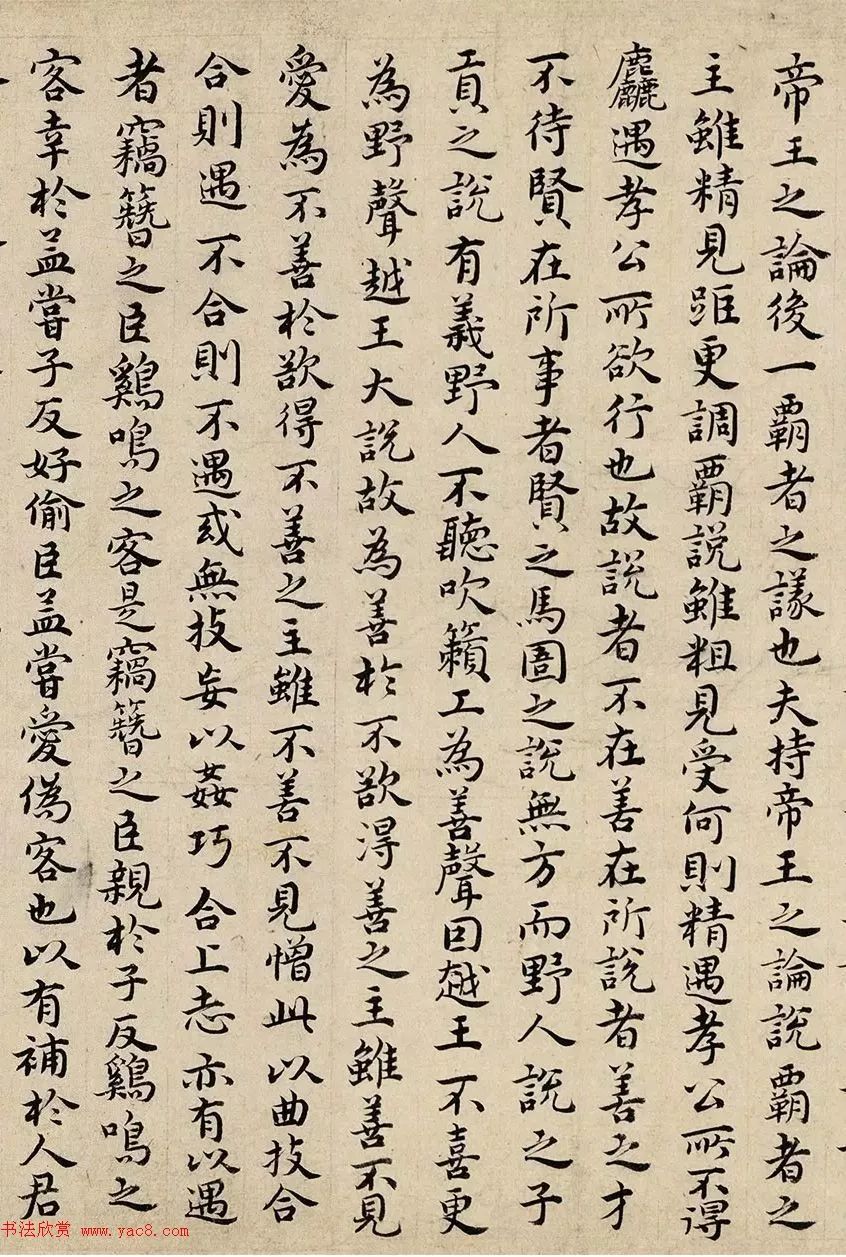 帝王之論後一霸者之議也夫持帝王之論說霸者之
主雖精見距更調霸說雖粗見受何則精遇孝公所不得
麤遇孝公所欲行也故說者不在善在所說者善之才
不待賢在所事者賢之馬圄之說無方而野人說之子
貢之說有義野人不聽吹籟工為善聲因越王不喜更
為野聲越王大說故為善於不欲得善之主雖善不見
愛為不善於欲得不善之主雖不善不見憎此以曲技合
合則遇不合則不遇或無技妄以姦巧合上志亦有以遇
者竊簪之臣鷄鳴之客是竊簪之臣親於子反鷄鳴之
客幸於孟嘗子反好偷臣孟嘗愛偽客也以有補於人君
书法欣赏 www.yac8.com